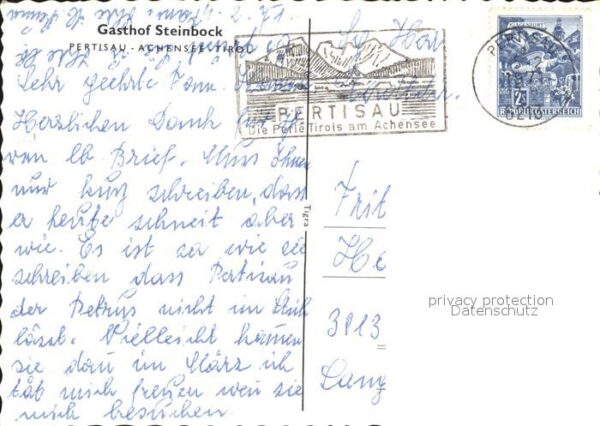 Gasthof Steinbock
PERTISAU - ACHENSEE - TIROL
2. 71.
Sehr geehrte Fam.
Herzlichen Dank für
den lb Brief. Muss Ihnen
nur kurz schreiben, dass
er heute schneit aber
wie. Es ist so wie sie
schreiben dass Pertisau
der Petrus nicht im Stich
lässt. Vielleicht kommen
sie dan im März ich
tät mich freuen wen sie
mich besuchen.
PERTISAU
Die Perle Tirols am Achensee
PERTISAU
REPUBLIK ÖSTERREICH
Tigra
Sg. Herr
Frit
He
3013
Lang
privacy protection
Datenschutz